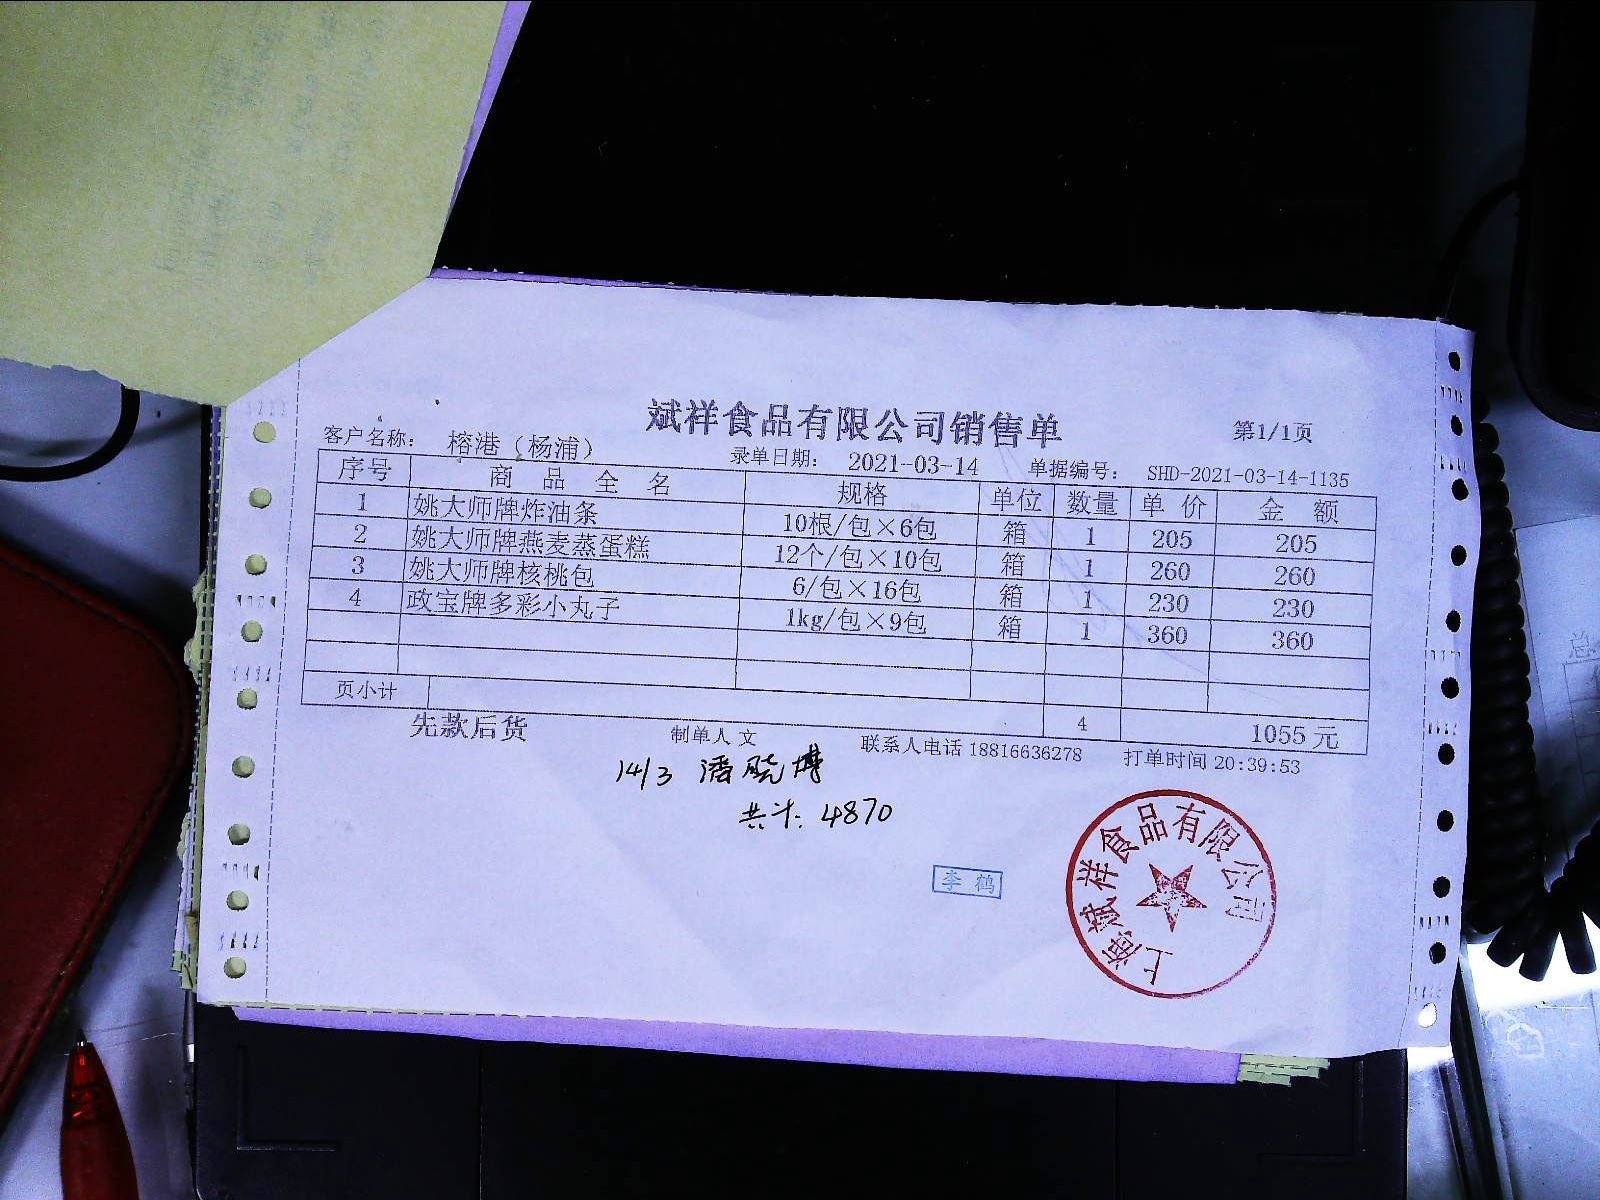 斌祥食品有限公司销售单
第1/1页
客户名称： 榕港（杨浦） 录单日期： 2021-03-14 单据编号： SHD-2021-03-14-1135
序号 商 品 全 名 规格 单位 数量 单 价 金 额
1 姚大师牌炸油条 10根/包×6包 箱 1 205 205
2 姚大师牌燕麦蒸蛋糕 12个/包×10包 箱 1 260 260
3 姚大师牌核桃包 6/包×16包 箱 1 230 230
4 政宝牌多彩小丸子 1kg/包×9包 箱 1 360 360
页小计 4 1055 元
先款后货 制单人 文 联系人电话 18816636278 打单时间 20:39:53
14/3 潘晓博
共计: 4870
李 鹤
上海斌祥食品有限公司